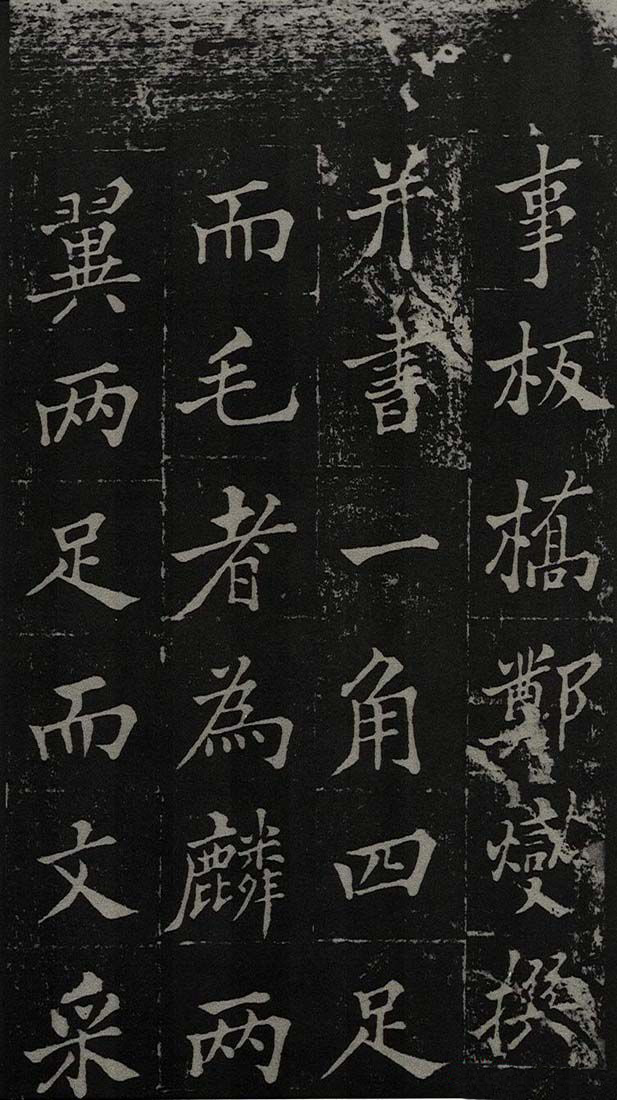 事板橋鄭燮撰
并書一角四足
而毛者為麟兩
翼两足而文采